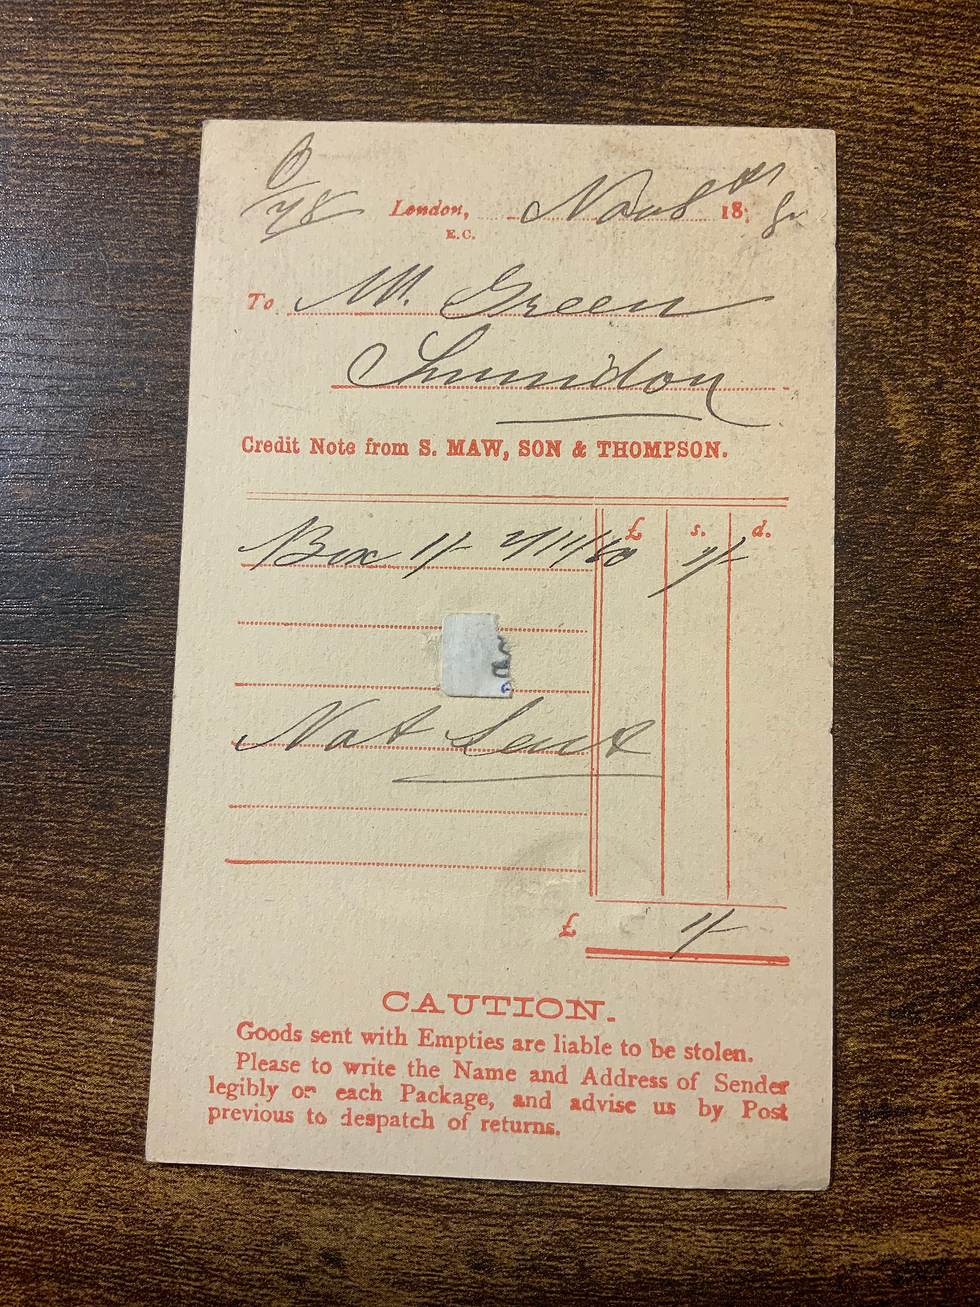 London, Nov 8th 18
E.C.
To Mr. Green
Swindon
Credit Note from S. MAW, SON & THOMPSON.
£ s. d.
Box 1/- 1/-
Not Sent
£ 1/-
CAUTION.
Goods sent with Empties are liable to be stolen.
Please to write the Name and Address of Sender
legibly on each Package, and advise us by Post
previous to despatch of returns.